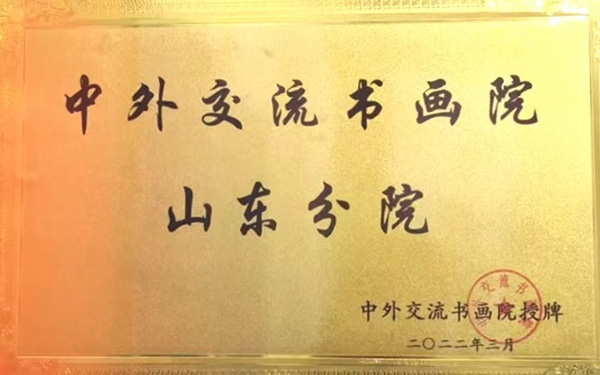 中外交流书画院
山东分院
中外交流书画院授牌
二〇二二年三月